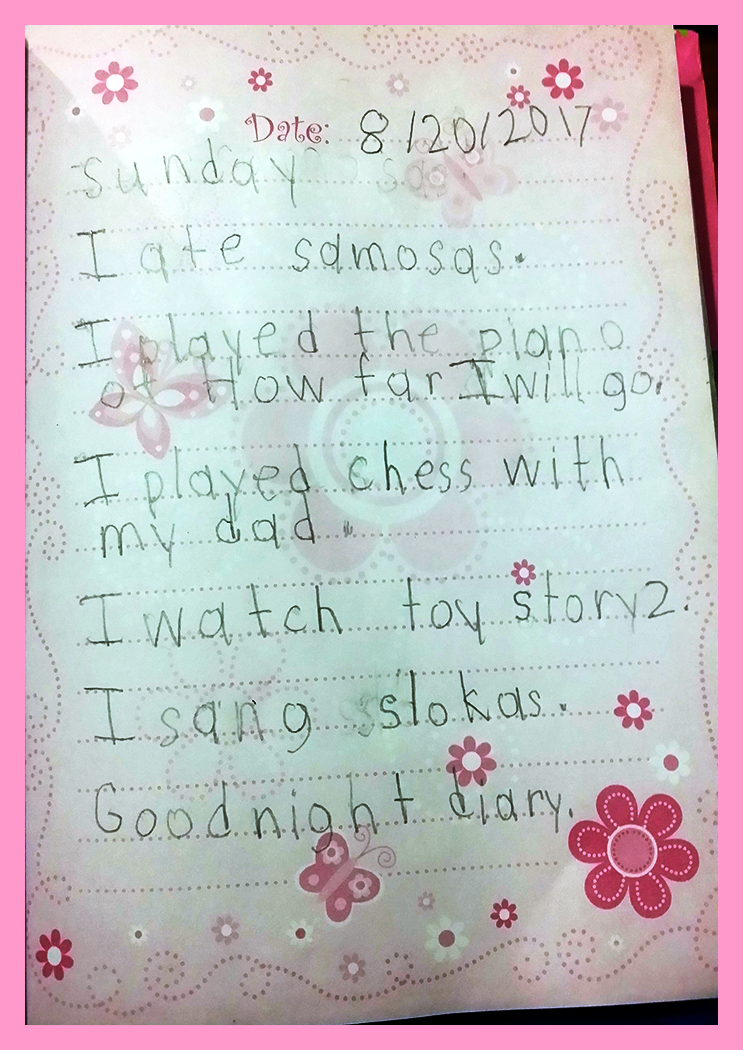 Date: 8/20/2017
sunday
I ate samosas.
I played the piano
of How far I will go.
I played chess with
my dad.
I watch toy story2.
I sang slokas.
Good night diary.